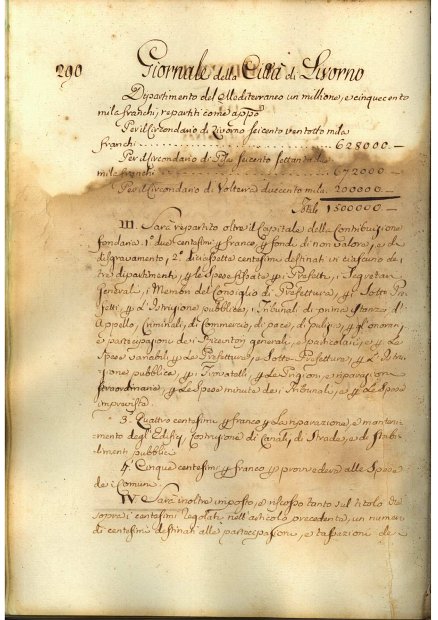 290 Giornale della Città di Livorno
Dipartimento del Mediterraneo un millione, e cinquecento
mila franchi, repartiti come app.o
Per il Circondario di Livorno seicento ventotto mila
franchi 628000.—
Per il Circondario di Pisa
mila franchi 672000.—
Per il Circondario di Volterra duecento mila 200000.—
Totale 1500000.—
III. Sarà repartito oltre il Capitale della Contribuzione
fondaria 1.° due centesimi franco fondi di non valore, e di
disgravamento, 2.° diciassette centesimi destinati in ciascuno de i
tre dipartimenti, le Spese fissate Prefetti, i Segretari
Generali, i Membri del Consiglio di Prefettura, i Sotto Pre-
fetti, l'Istruzione pubblica, i Tribunali di prima istanza, di
Appello, Criminali, di Commercio, di pace, di Pulizia, gl'onorari,
e partecipazioni de i Percettori generali, e particolari, e le
Spese variabili le Prefetture, e Sotto-Prefetture, l'Istru-
zione pubblica, le Prigioni, e riparazioni
straordinarie, le Spese minute de i Tribunali, e le Spese
impreviste
3.° Quattro centesimi franco la riparazione, e manteni-
mento degl'Edifizj, Costruzione di Canali, di Strade, e di Stabi-
limenti pubblici
4.° Cinque centesimi franco provvedere alle Spese
de i Comuni
IV. Sarà inoltre imposto, e riscosso tanto sul titolo di
sopra i centesimi regolati nell'articolo precedente, un numero
di centesimi destinati alle partecipazioni, e tassazioni de i